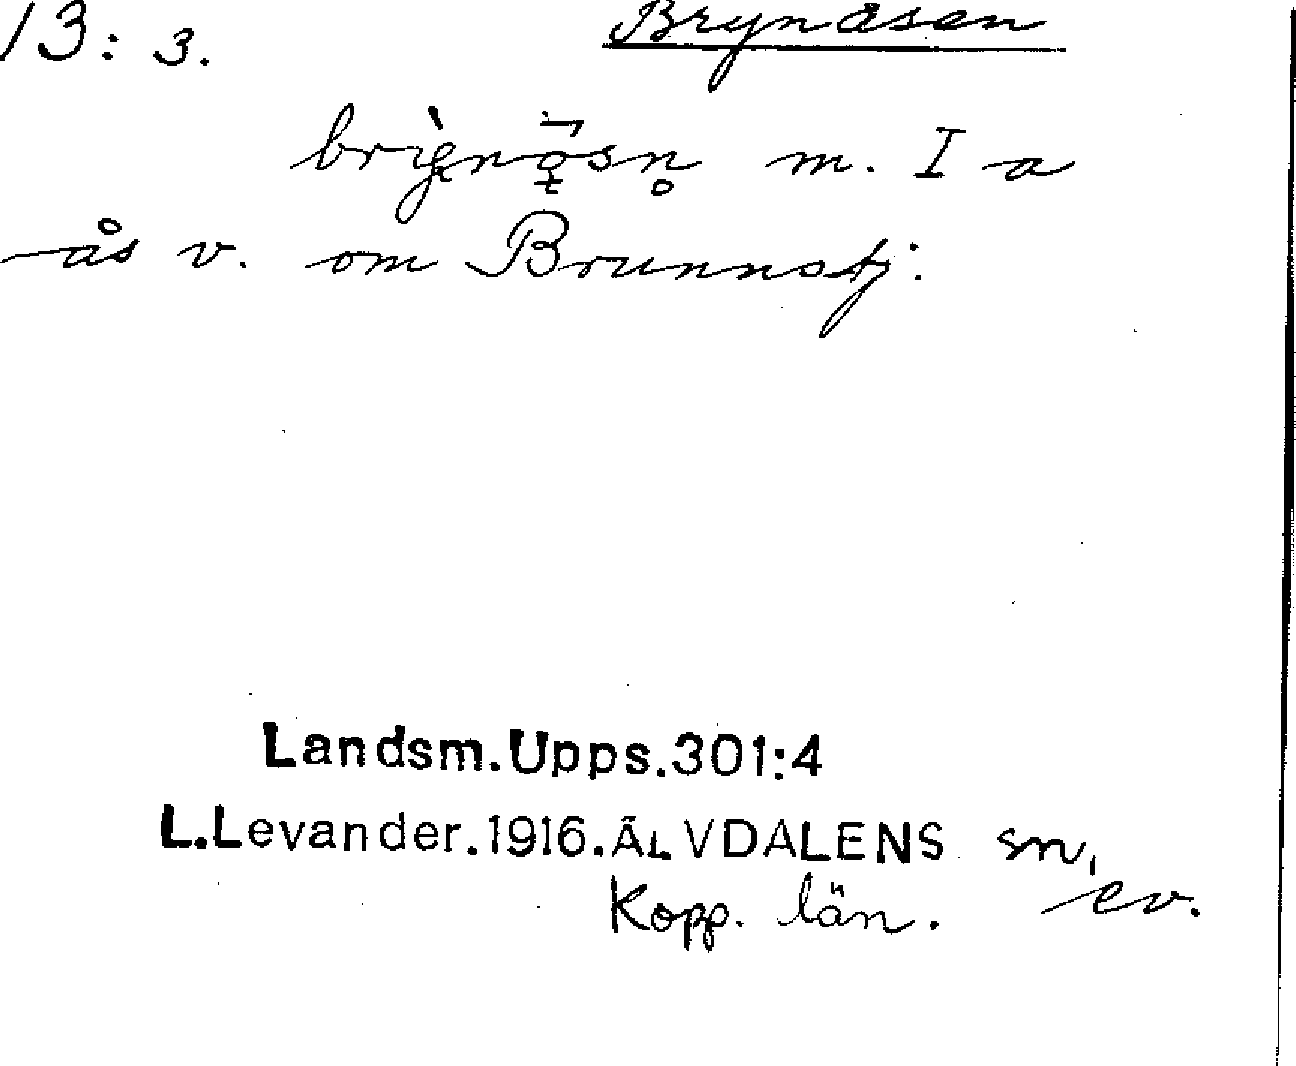 13: 3. Brynåsen
m. I a
ås v. om Brunnstj:
Landsm.Upps.301:4
L.Levander.1916.ÄLVDALENS sn,
Kopp. län. ev.